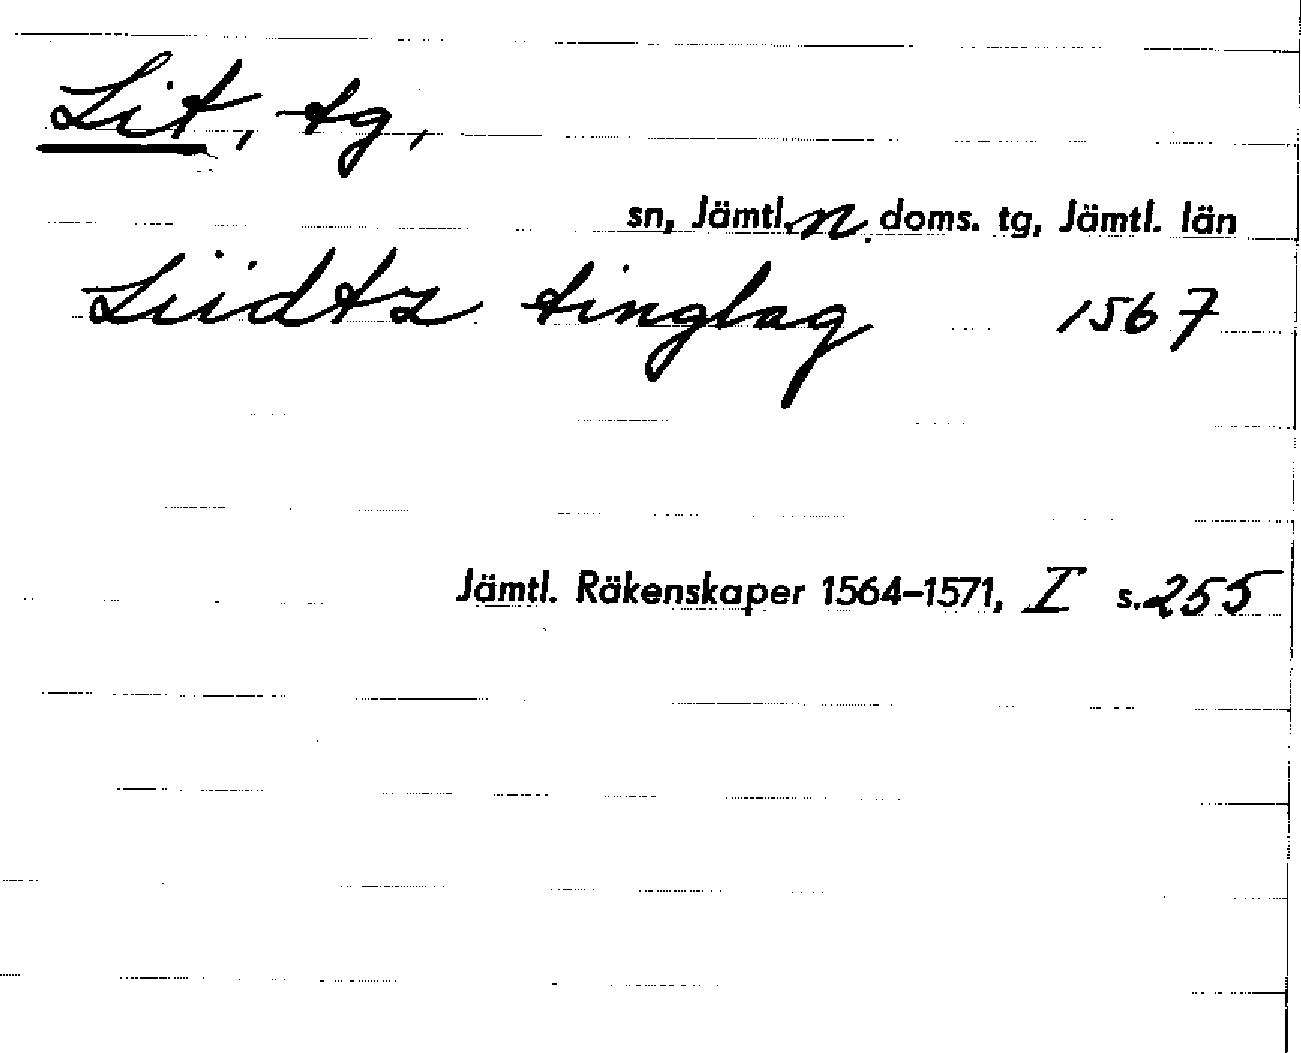 Lit, tg,
sn, Jämtl. n. doms. tg, Jämtl. län
Liidtz tinglag 1567
Jämtl. Räkenskaper 1564–1571, I s. 255